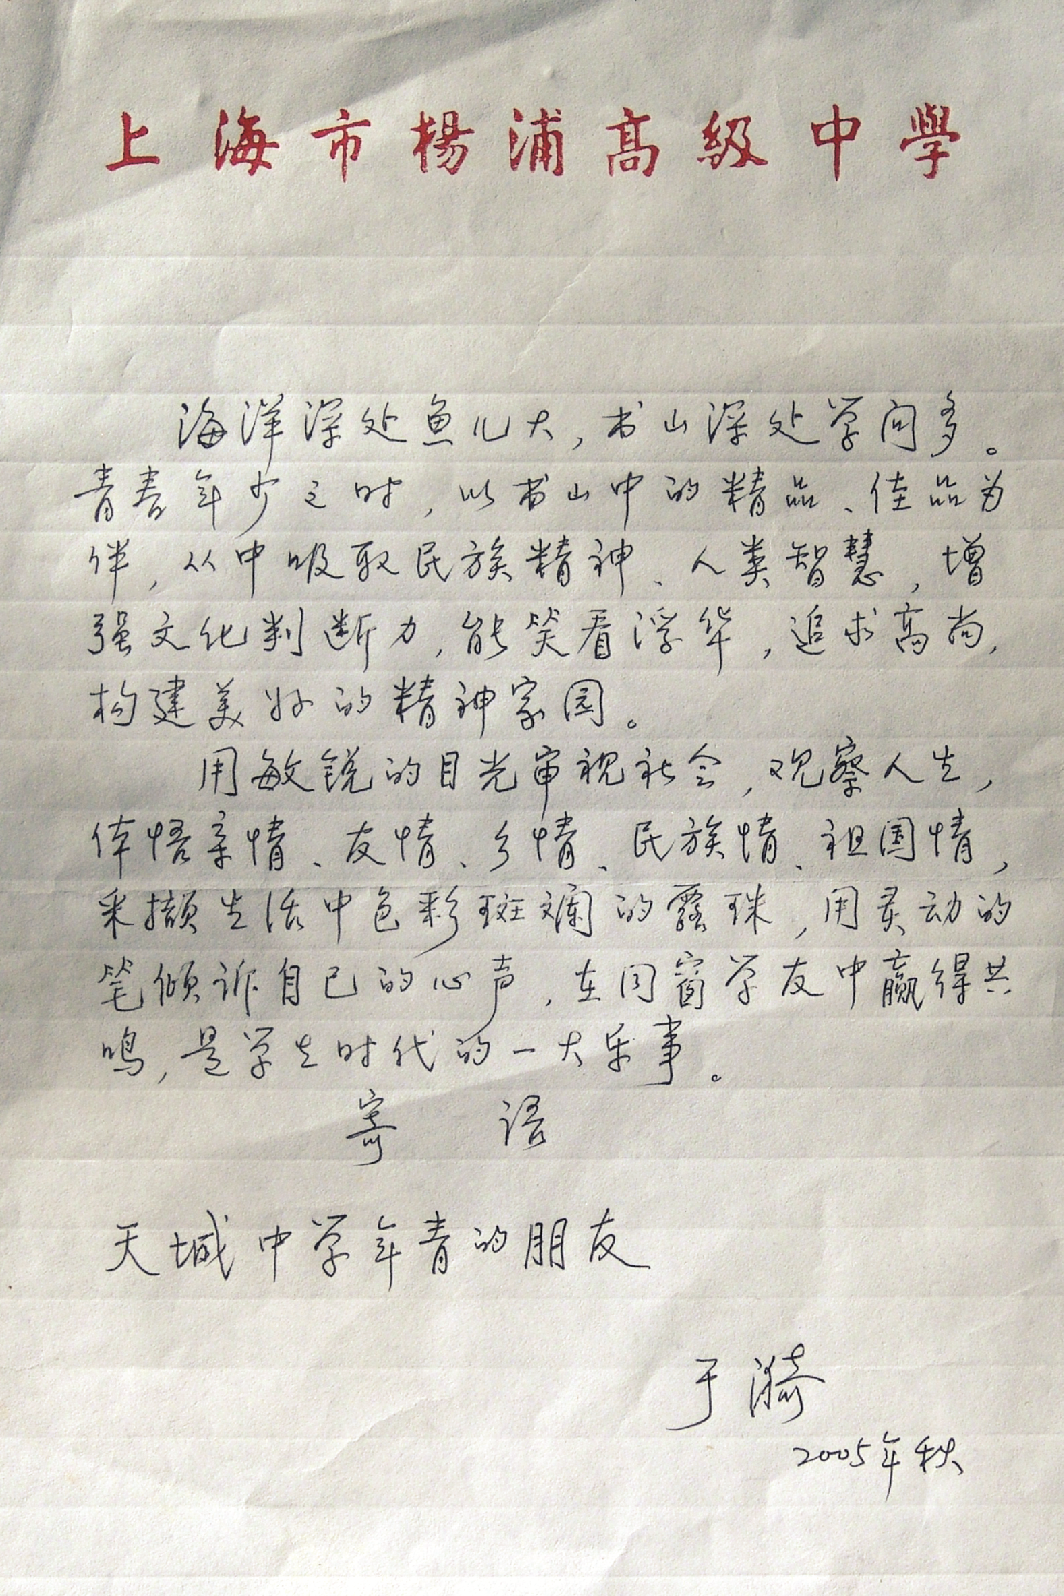 上海市楊浦高級中學
海洋深处鱼儿大，书山深处学问多。
青春年少之时，以书山中的精品、佳品为
伴，从中吸取民族精神、人类智慧，增
强文化判断力，能笑看浮华，追求高尚，
构建美好的精神家园。
用敏锐的目光审视社会，观察人生，
体悟亲情、友情、乡情、民族情、祖国情，
采撷生活中色彩斑斓的露珠，用灵动的
笔倾诉自己的心声，在同窗学友中赢得共
鸣，是学生时代的一大乐事。
寄 语
天城中学年青的朋友
于漪
2005年秋